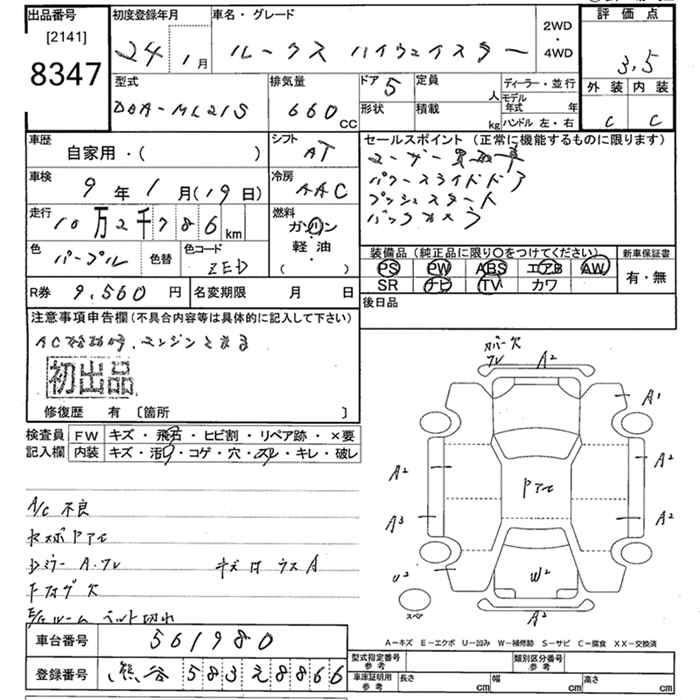 出品番号
[2141]
8347
初度登録年月
24 1月
車名・グレード
ルークス ハイウェイスター
2WD
・
4WD
評価点
3.5
外装 内装
C C
型式
DBA-ML21S
排気量
660 CC
ドア 5
形状
定員 人
積載 kg
ディーラー・並行
モデル年式 年
ハンドル 左・右
車歴
自家用・( )
シフト
AT
車検
9年1月(19日)
冷房
AAC
走行
10万2千786km
燃料
ガソリン
軽油
( )
色
パープル
色替
色コード
ZED
R券 9,560円
名変期限 月 日
セールスポイント(正常に機能するものに限ります)
ユーザー買取車
パワースライドドア
プッシュスタート
バックカメラ
装備品(純正品に限り○をつけてください)
PS PW ABS エアB AW
SR ナビ TV カワ
新車保証書
有・無
後日品
注意事項申告欄(不具合内容等は具体的に記入して下さい)
AC始動時、エンジン
初出品
修復歴 有 [箇所 ]
検査員記入欄
FW キズ・飛石・ヒビ割・リペア跡・×要
内装 キズ・汚レ・コゲ・穴・スレ・キレ・破レ
A/C 不良
A・ワレ キズ ウスA
ルーム ベルト切れ
カバー欠
ワレ
A2
A1
A2
A2
A3
A2
U2
W2
A2
スペア
A=キズ E=エクボ U=凹み W=補修跡 S=サビ C=腐食 XX=交換済
車台番号 561980
登録番号 熊谷 583 え 8866
型式指定番号 参考
類別区分番号 参考
車庫証明用 参考
長さ cm
幅 cm
高さ cm